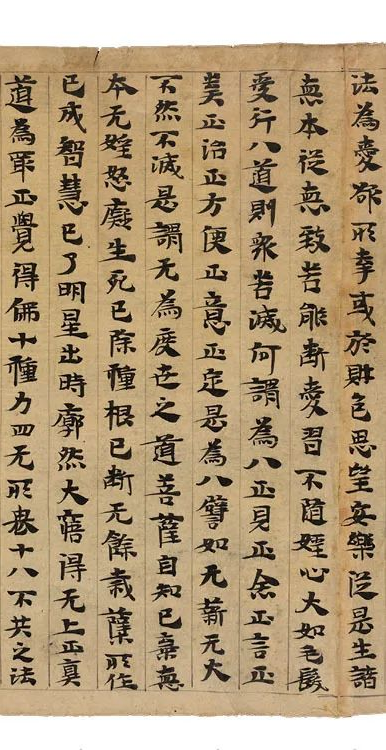 法為愛欲所牽或於財色思望安樂従是生諸
惡本従惡致苦能断愛習不隨婬心大如毛髮
受行八道則衆苦滅何謂為八正見正念正言正
業正治正方便正意正定是為八譬如无薪无火
不然不滅是謂无為度世之道菩薩自知已棄惡
本无婬怒癡生死已除種根已断无餘栽蘖所作
已成智慧已了明星出時廓然大寤得无上正真
道為㝡正覺得佛十種力四无所畏十八不共之法